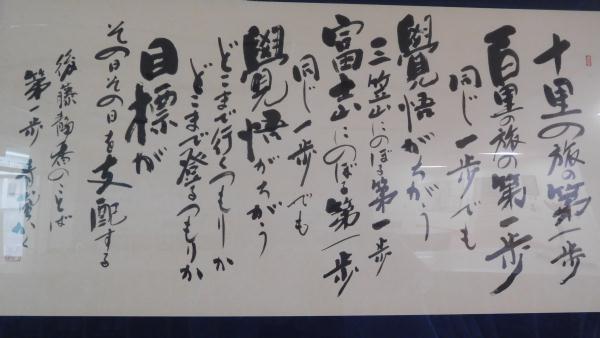 十里の旅の第一歩
百里の旅の第一歩
同じ一歩でも
覺悟がちがう
三笠山にのぼる第一歩
富士山にのぼる第一歩
同じ一歩でも
覺悟がちがう
どこまで行くつもりか
どこまで登るつもりか
目標が
その日その日を支配する
後藤静香のことば
第一歩